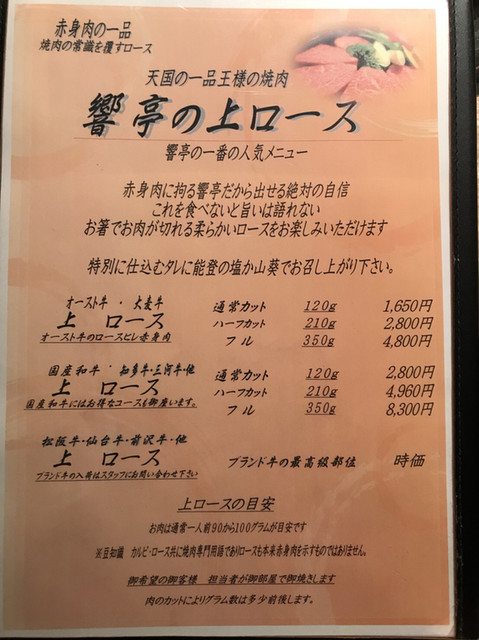 赤身肉の一品
焼肉の常識を覆すロース
天国の一品王様の焼肉
響亭の上ロース
響亭の一番の人気メニュー
赤身肉に拘る響亭だから出せる絶対の自信
これを食べないと旨いは語れない
お箸でお肉が切れる柔らかいロースをお楽しみいただけます
特別に仕込むタレに能登の塩か山葵でお召し上がり下さい。
オースト牛 ・ 大麦牛 通常カット 120g 1,650円
上 ロース ハーフカット 210g 2,800円
オースト牛のロースヒレ赤身肉 フル 350g 4,800円
国産和牛 ・ 知多牛・三河牛・他 通常カット 120g 2,800円
上 ロース ハーフカット 210g 4,960円
国産和牛にはお得なコースも御座います。 フル 350g 8,300円
松阪牛・仙台牛・前沢牛・他
上 ロース ブランド牛の最高級部位 時価
ブランド牛の入荷はスタッフにお問い合わせ下さい
上ロースの目安
お肉は通常一人前90から100グラムが目安です
※豆知識 カルビ・ロース共に焼肉専門用語でありロースも本来赤身肉を示すものではありません。
御希望の御客様 担当者が御部屋で御焼きします
肉のカットによりグラム数は多少前後します。